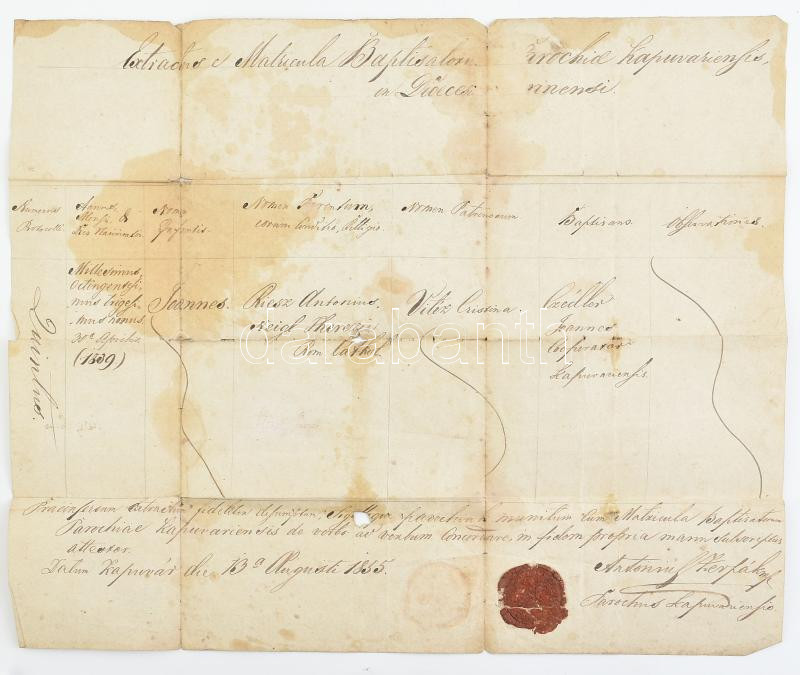 Extractus e Matricula Baptisatorum Parochiae Kapuvariensis,
in Dioecesi nnensi.
Numerus
Protocolli
Annus,
Mensis &
Dies Nativitatis
Nomen
Nomen Parentum,
eorum Conditio, Religio.
Nomen Patrinorum
Baptisans.
Observationes.
Quintus.
Millesimo
octingentesi-
mo trigesi-
mo nonus
30a Aprilis
(1839)
Joannes.
Riesz Antonius,
Theresia
Rom. Cathol.
Vitéz Cristina.
Czédler
Joannes
Cooperator
Kapuvariensis.
darabanth
Praeinsertum extractum fideliter desumptum, Sigillique parochialis munitum cum Matricula Baptisatorum
Parochiae Kapuvariensis de verbo ad verbum concordare, in fidem propria manu subscriptus
attestor.
Datum Kapuvár die 13a Augusti 1855.
Antonius
Parochus Kapuvariensis